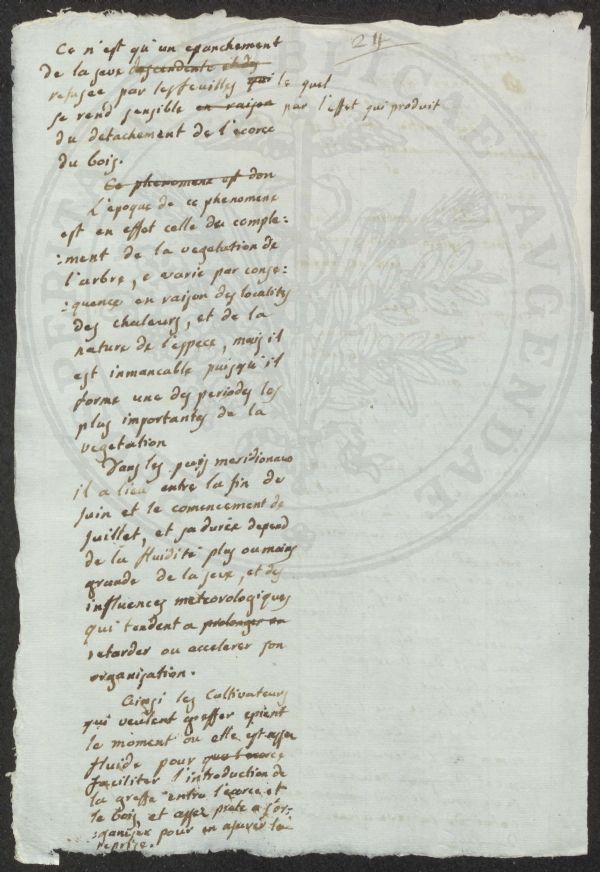 24
Ce n'est qu'un epanchement
de la seve descendente et des
refusée par les feuilles qui le quel
se rend sensible en raison par l'effet qui produit
du detachement de l'ecorce
du bois.
Ce phenomene est don
L'epoque de ce phenomene
est en effet celle du comple:
:ment de la vegetation de
l'arbre, e varie par conse:
:quence en raison des localites
des chaleurs, et de la
nature de l'espece, mais il
est inmancable puisqu'il
forme une des periodes les
plus importantes de la
vegetation
Dans les païs meridionaux
il a lieu entre la fin de
juin et le comencement de
juillet, et sa durée depend
de la fluidité plus ou moins
grande de la seve, et des
influences meteorologiques
qui tendent a prolonger en
retarder ou accelerer son
organisation.
Ainsi les Cultivateurs
qui veulent greffer epient
le moment ou elle est assez
fluide pour que l'ecorce
faciliter l'introduction de
la greffe entre l'ecorce et
le bois, et assez prete a s'or:
:ganiser pour en assurer la
reprise.
PERITA REI PUBLICAE AVGENDAE